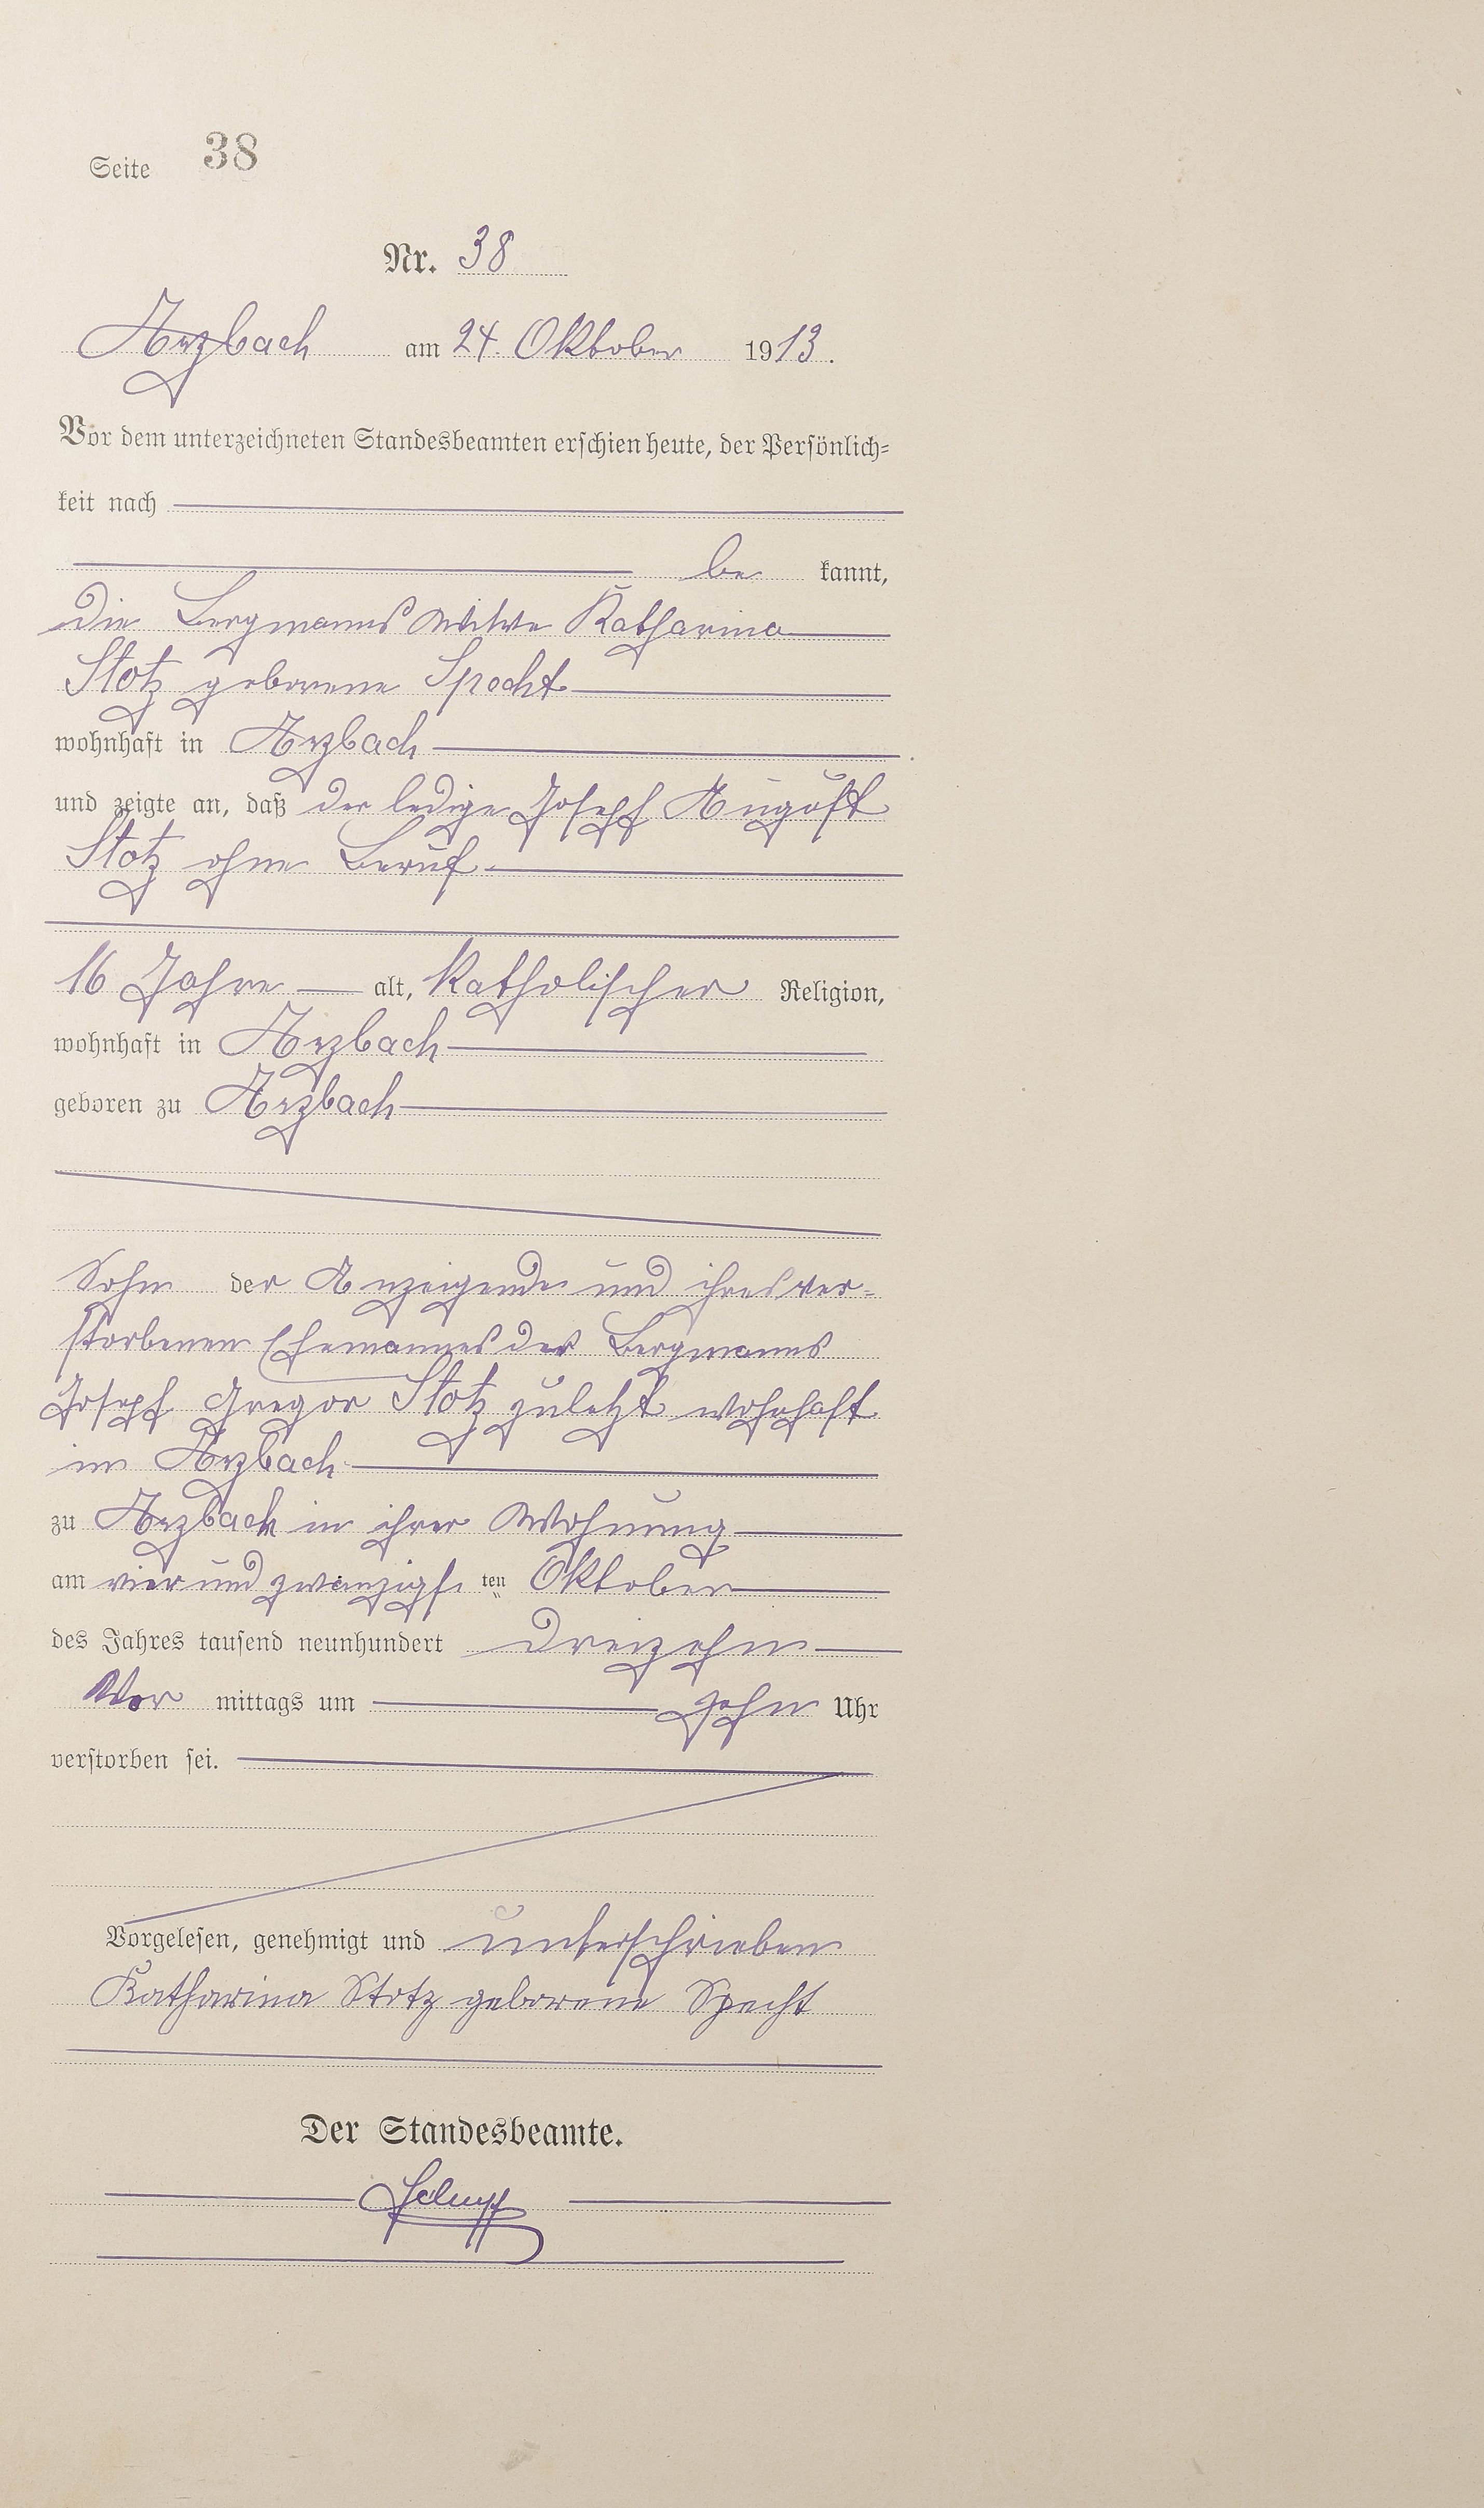 Seite 38
Nr. 38
Arzbach am 24. Oktober 1913.
Vor dem unterzeichneten Standesbeamten erschien heute, der Persönlich=
keit nach
be kannt,
die Bergmanns Witwe Katharina
Stotz geborene Specht
wohnhaft in Arzbach
und zeigte an, daß der ledige Joseph August
Stotz ohne Beruf
16 Jahre alt, katholischer Religion,
wohnhaft in Arzbach
geboren zu Arzbach
Sohn der Anzeigende und ihres ver=
storbenen Ehemannes des Bergmanns
Joseph Gregor Stotz zuletzt wohnhaft
in Arzbach
zu Arzbach in ihrer Wohnung
am vier und zwanzigs ten Oktober
des Jahres tausend neunhundert dreizehn
Vor mittags um zehn Uhr
verstorben sei.
Vorgelesen, genehmigt und unterschrieben
Katharina Stotz geborene Specht
Der Standesbeamte.